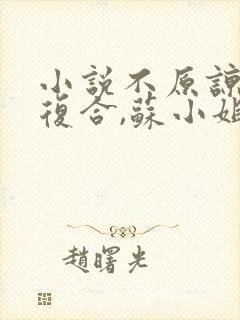 小說不原諒
復合,蘇小姐
趙曙光